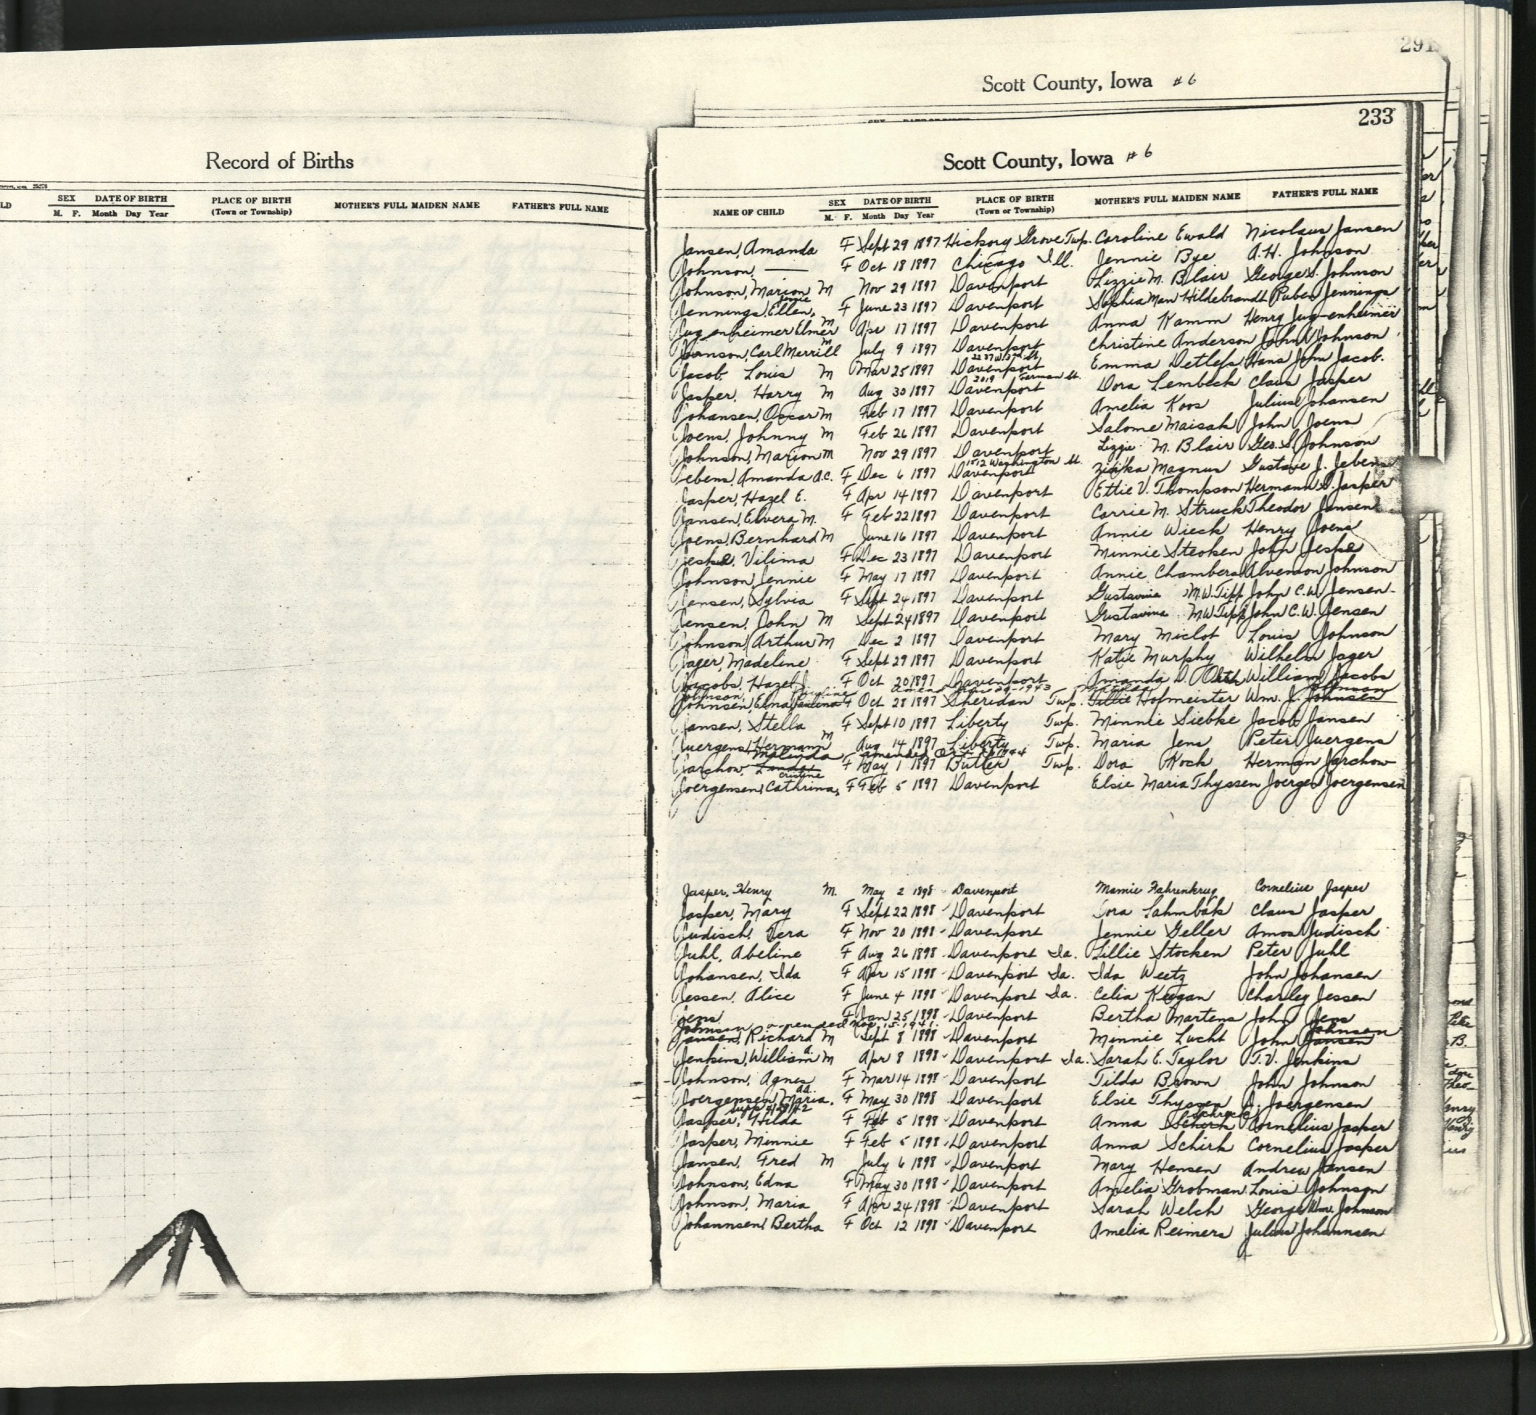 291
Scott County, Iowa #6
233
Record of Births
Scott County, Iowa #6
SEX DATE OF BIRTH PLACE OF BIRTH MOTHER'S FULL MAIDEN NAME FATHER'S FULL NAME
M. F. Month Day Year (Town or Township)
NAME OF CHILD SEX DATE OF BIRTH PLACE OF BIRTH MOTHER'S FULL MAIDEN NAME FATHER'S FULL NAME
M. F. Month Day Year (Town or Township)
Jansen, Amanda F Sept 29 1897 Hickory Grove Twp. Caroline Ewald Nicolaus Jansen
Johnson, — F Oct 18 1897 Chicago Ill. Jennie Bye A.H. Johnson
Johnson, Marion M Nov 29 1897 Davenport Lizzie M. Blair George S. Johnson
Jennings, Ellen, F June 23 1897 Davenport Sophia Man Hildebrandt Ruben Jennings
Jugenheimer Elmer M Apr 17 1897 Davenport Anna Kamm Henry Jugenheimer
Johnson, Carl Merrill M July 9 1897 Davenport Christine Anderson John A Johnson
Jacob Louis M Mar 25 1897 Davenport Emma Detlefs Hans John Jacob.
Jasper, Harry M Aug 30 1897 2019 German St. Davenport Dora Lembeck Claus Jasper
Johansen, Oscar M Feb 17 1897 Davenport Amelia Koos Julius Johansen
Joens, Johnny M Feb 26 1897 Davenport Salome Maisak John Joens
Johnson, Marion M Nov 29 1897 Davenport Lizzie M. Blair Geo. S. Johnson
Jebens, Amanda A.C. F Dec 6 1897 1512 Washington St. Davenport Zinka Magnus Gustave J. Jebens
Jasper, Hazel E. F Apr 14 1897 Davenport Ettie V. Thompson Hermann S. Jasper
Jansen, Elvera M. F Feb 22 1897 Davenport Carrie M. Struck Theodor Jansen
Joens, Bernhard M June 16 1897 Davenport Annie Wieck Henry Joens
Jeske, Vilima F Dec 23 1897 Davenport Minnie Stecken John Jeske
Johnson, Jennie F May 17 1897 Davenport Annie Chambers Alvenson Johnson
Jensen, Sylvia F Sept 24 1897 Davenport Gustavine M.W. Tipp John C.W. Jensen
Jensen, John M Sept 24 1897 Davenport Gustavine M.W. Tipp John C.W. Jensen
Johnson, Arthur M Dec 2 1897 Davenport Mary Miclot Louis Johnson
Jager, Madeline F Sept 29 1897 Davenport Katie Murphy Wilhelm Jager
Jacobs, Hazel J. F Oct 20 1897 Davenport Amanda D. Orth William Jacobs
Johnsen, Elna Paulina F Oct 28 1897 Sheridan Twp. Tillie Hofmeister Wm. J. Johnsen
Jansen, Stella F Sept 10 1897 Liberty Twp. Minnie Siebke Jacob Jansen
Juergens, Hermann M Aug 14 1897 Liberty Twp. Maria Jens Peter Juergens
Malinda amended Oct 1944
Jarchow, F May 1 1897 Butler Twp. Dora Koch Herman Jarchow
Joergensen, Cathrina, F Feb 5 1897 Davenport Elsie Maria Thyssen Joergen Joergensen
Jasper, Henry M. May 2 1898 Davenport Mamie Fahrenkrug Cornelius Jasper
Jasper, Mary F Sept 22 1898 Davenport Dora Lahmbak Claus Jasper
Judisch, Vera F Nov 20 1898 Davenport Jennie Geller Amos Judisch
Juhl, Abeline F Aug 26 1898 Davenport Ia. Lillie Stocken Peter Juhl
Johansen, Ida F Apr 15 1898 Davenport Ia. Ida Weetz John Johansen
Jessen, Alice F June 4 1898 Davenport Ia. Celia Keegan Charley Jessen
Jens F Jan 25 1898 Davenport Bertha Martens John Jens
Johnson amended Nov. 15 1941 Johnsen
Jansen, Richard M Sept 8 1898 Davenport Minnie Lucht John Jansen
Jenkins, William A. M Apr 8 1898 Davenport Ia. Sarah E. Taylor T.V. Jenkins
Johnson, Agnes F Mar 14 1898 Davenport Tilda Brown John Johnson
Joergensen, Maria, F May 30 1898 Davenport Elsie Thyssen J. Joergensen
Jasper, Hilda F Feb 5 1898 Davenport Anna Schirk Cornelius Jasper
Jasper, Minnie F Feb 5 1898 Davenport Anna Schirk Cornelius Jasper
Jansen, Fred M July 6 1898 Davenport Mary Hensen Andrew Jansen
Johnson, Edna F May 30 1898 Davenport Amelia Grobman Louis Johnson
Johnson, Maria F Apr 24 1898 Davenport Sarah Welch George Wm. Johnson
Johannsen, Bertha F Oct 12 1898 Davenport Amelia Reimers Julius Johannsen